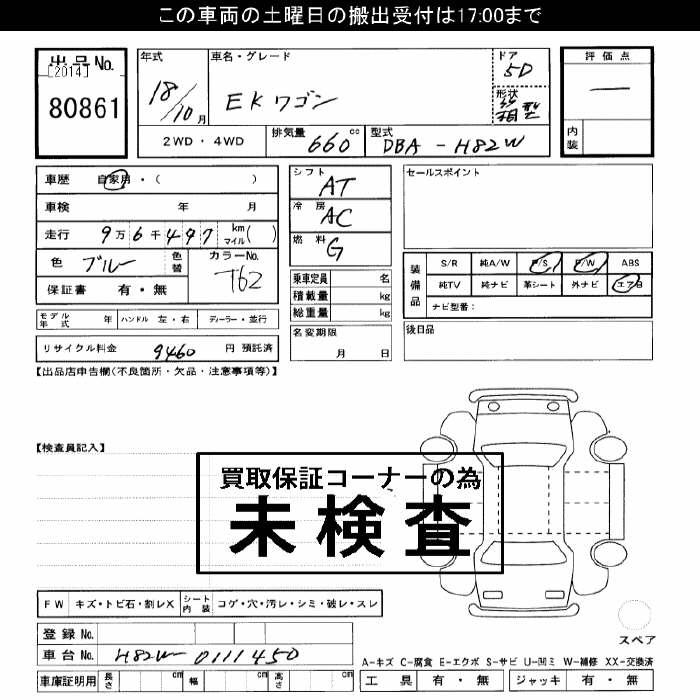 この車両の土曜日の搬出受付は17:00まで
出品No.
[2014]
80861
年式 18/10月
車名・グレード EKワゴン
ドア 5D
形状 箱型
評価点 —
内装
2WD・4WD
排気量 660cc
型式 DBA-H82W
車歴 自家用・( )
車検 年 月
走行 9万6千497 km マイル( )
色 ブルー 色替 カラーNo. T62
保証書 有・無
シフト AT
冷房 AC
燃料 G
セールスポイント
乗車定員 名
積載量 kg
総重量 kg
装備品 S/R 純A/W P/S P/W ABS
純TV 純ナビ 革シート 外ナビ エアB
ナビ型番:
モデル年式 年 ハンドル 左・右 ディーラー・並行
名変期限 月 日
後日品
リサイクル料金 9460 円 預託済
【出品店申告欄(不良箇所・欠品・注意事項等)】
【検査員記入】
買取保証コーナーの為
未検査
FW キズ・トビ石・割レX シート内装 コゲ・穴・汚レ・シミ・破レ・スレ
登録No.
車台No. H82W-0111450
スペア
A-キズ C-腐食 E-エクボ S-サビ U-凹ミ W-補修 XX-交換済
車庫証明用 長さ cm 幅 cm 高さ cm
工具 有・無 ジャッキ 有・無